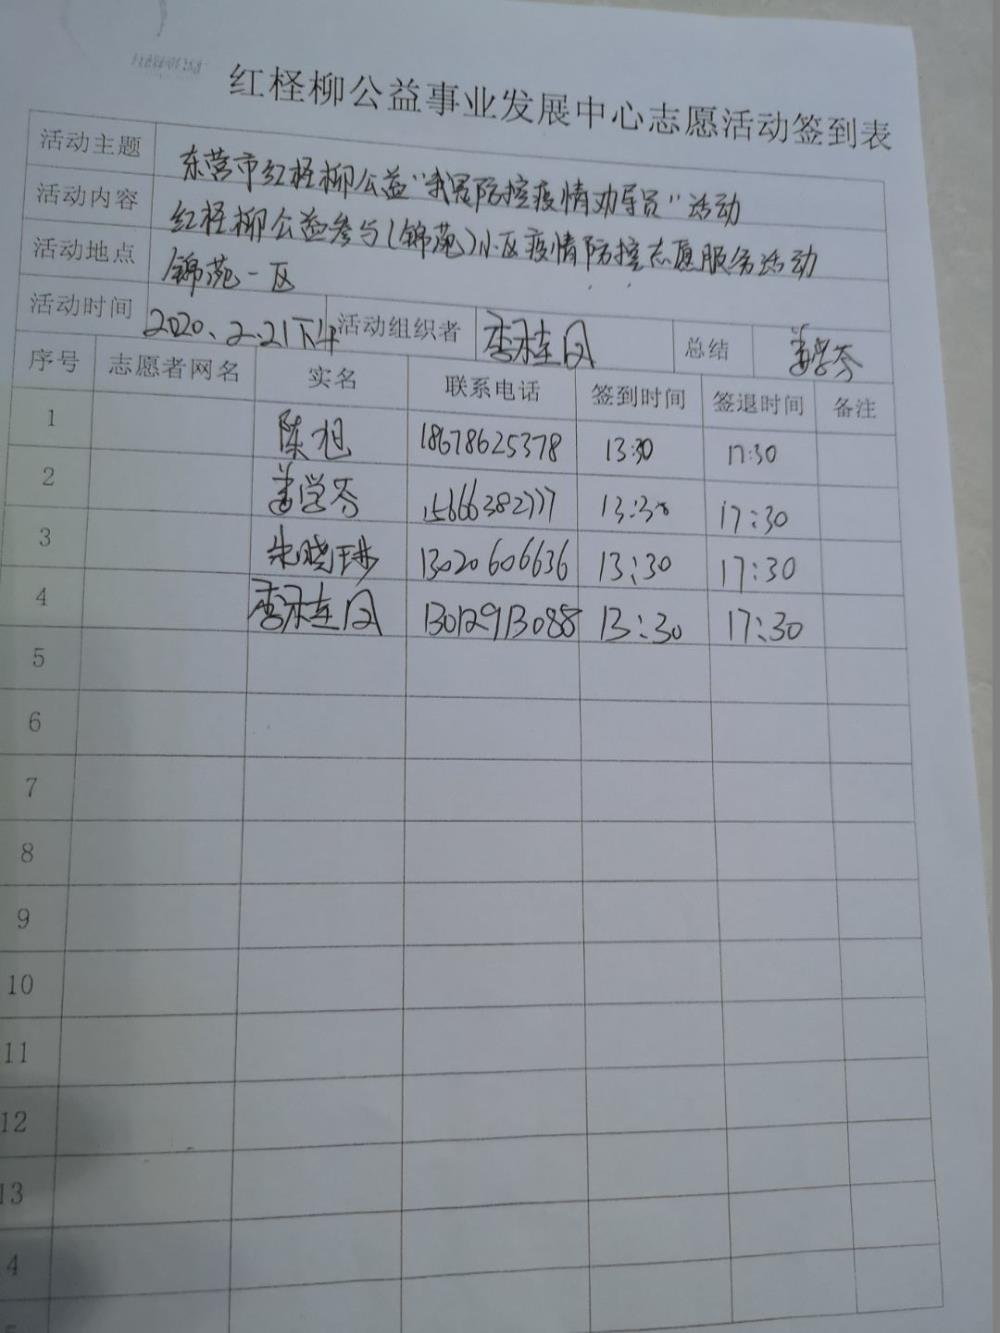 红柽柳公益事业发展中心志愿活动签到表
活动主题 东营市红柽柳公益“我是防控疫情劝导员”活动
活动内容 红柽柳公益参与(锦苑)小区疫情防控志愿服务活动
活动地点 锦苑一区
活动时间 2020.2.21下午 活动组织者 总结 姜学芬
序号 志愿者网名 实名 联系电话 签到时间 签退时间 备注
1 陈旭 18678625378 13:30 17:30
2 姜学芬 15666382777 13:30 17:30
3 朱晓琳 13020606636 13:30 17:30
4 13012913088 13:30 17:30
5
6
7
8
9
10
11
12
13
4